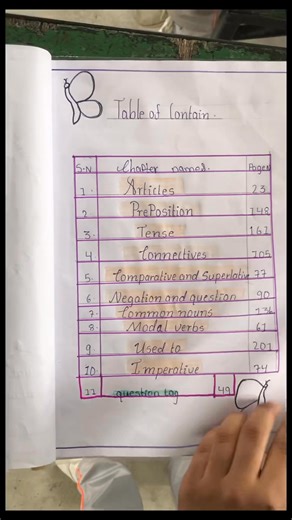 Table of Contain.
S.N. Chapter named. Pages
1. Articles 23
2 PrePosition 148
3. Tense 161
4 Connectives 105
5. Comparative and Superlative 77
6 Negation and question 90
7. Common nouns
8. Modal verbs 61
9. Used to 201
10. Imperative 74
11 question tag 49